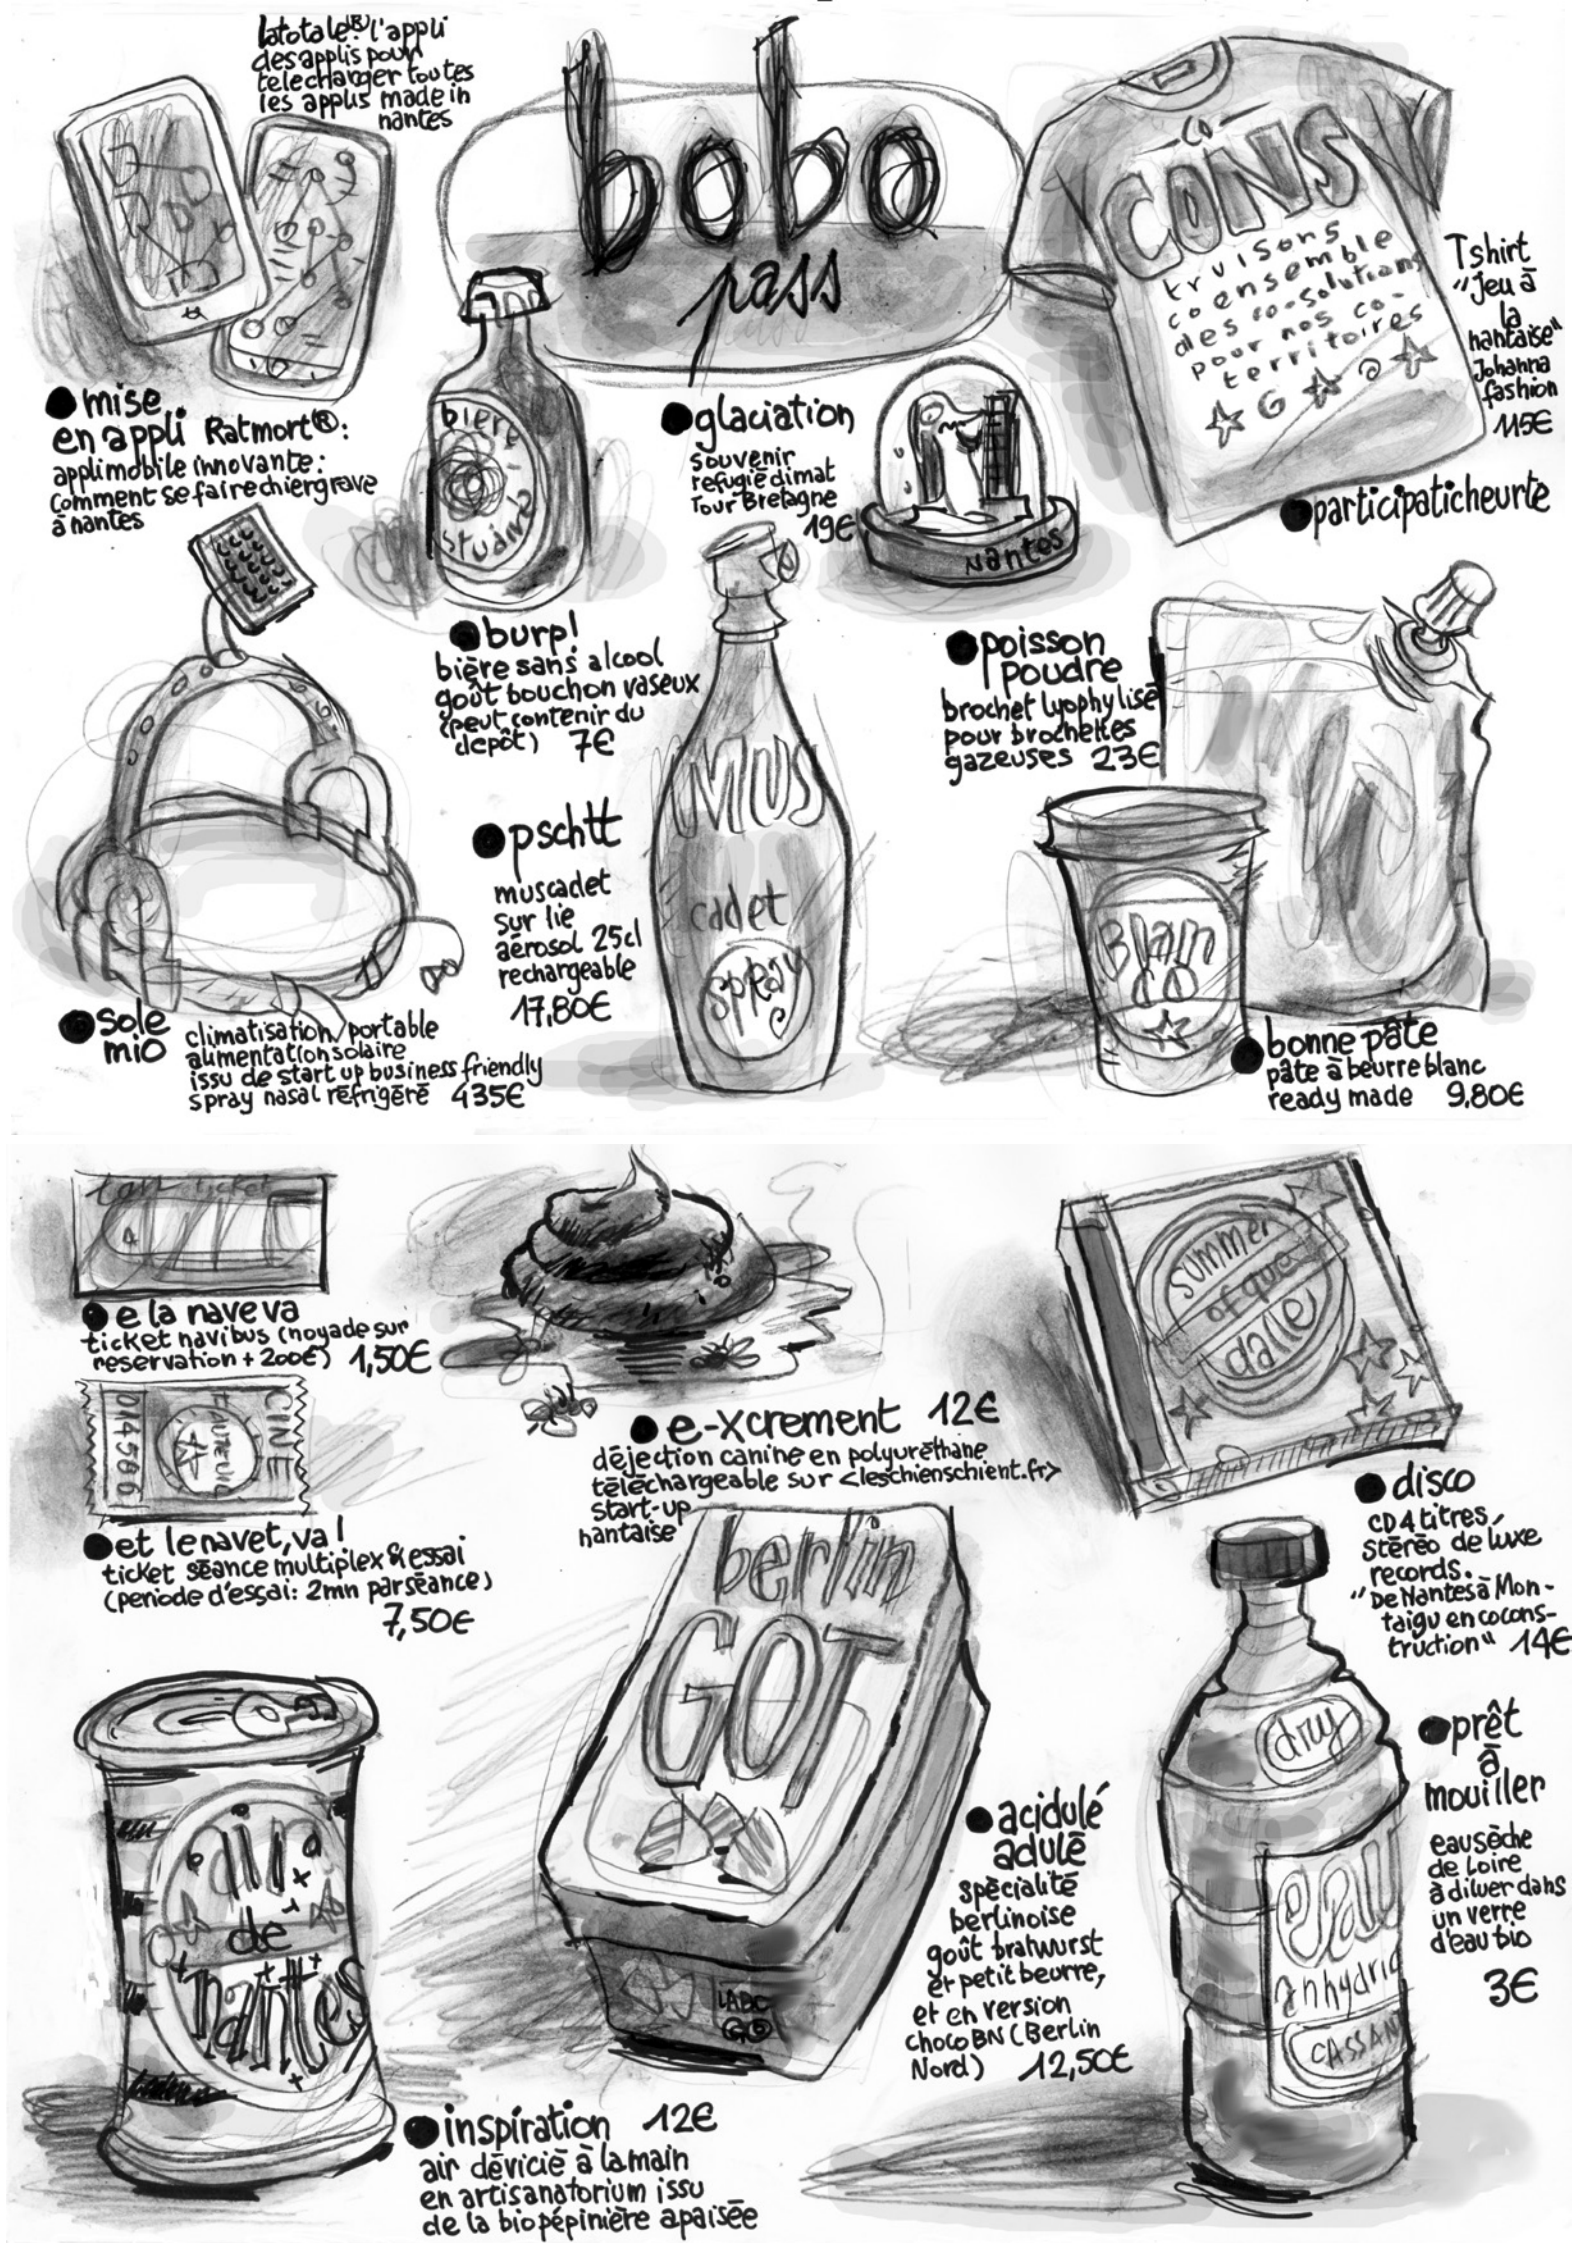 latotale® l'appli
des applis pour
telecharger toutes
les applis made in
nantes
bobo
pass
co
CONS
truisons
coensemble
des co-solutions
pour nos co-
territoires
Tshirt
"Jeu à
la
nantaise"
Johanna
fashion
115€
● participaticheurte
● mise
en appli Ratmort®:
appli mobile innovante:
comment se faire chier grave
à nantes
bière
● glaciation
souvenir
refugié climat
Tour Bretagne
19€
Nantes
● burp!
bière sans alcool
goût bouchon vaseux
(peut contenir du
depôt) 7€
● poisson
poudre
brochet lyophylisé
pour brochettes
gazeuses 23€
● pschtt
muscadet
sur lie
aérosol 25cl
rechargeable
17,80€
MUS
cadet
spray
● sole
mio
climatisation portable
alimentation solaire
issu de start up business friendly
spray nasal réfrigéré 435€
Blan
co
● bonne pâte
pâte à beurre blanc
ready made 9,80€
tan ticket
● e la nave va
ticket navibus (noyade sur
reservation + 200€) 1,50€
CINE
FAUTEUIL
A
0145866
● et le navet, va!
ticket séance multiplex & essai
(periode d'essai: 2mn par séance)
7,50€
● e-xcrement 12€
déjection canine en polyuréthane
téléchargeable sur <leschienschient.fr>
start-up
nantaise
summer
of que
dalle
● disco
CD 4 titres,
stéréo de luxe
records.
"De Nantes à Mon-
taigu en cocons-
truction" 14€
berlin
GOT
● acidulé
adulé
spécialité
berlinoise
goût bratwurst
et petit beurre,
et en version
choco BN (Berlin
Nord) 12,50€
dry
eau
anhydrid
CASSAN
● prêt
à
mouiller
eau sèche
de Loire
à diluer dans
un verre
d'eau bio
3€
air
de
nantes
● inspiration 12€
air dévicié à la main
en artisanatorium issu
de la bio pépinière apaisée